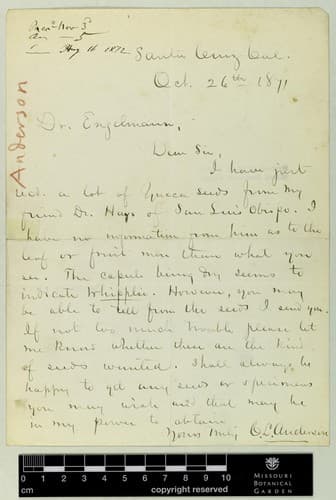 Aug 16 1872
Anderson
Santa Cruz Cal.
Oct. 26th 1871
Dr. Engelmann,
Dear Sir,
I have just
recd. a lot of Yucca seeds from my
friend Dr. Hays of San Luis Obispo. I
have no information from him as to the
leaf or fruit more than what you
see. The capsule being dry seems to
indicate Whipplei. However, you may
be able to tell from the seeds I send you.
If not too much trouble please let
me know whether these are the kind
of seeds wanted. Shall always be
happy to get any seeds or specimens
you may wish and that may be
in my power to obtain
Yours truly C. L. Anderson
0 1 2 3 4 5 6 7 8 9 10
cm
copyright reserved
MISSOURI
BOTANICAL
GARDEN